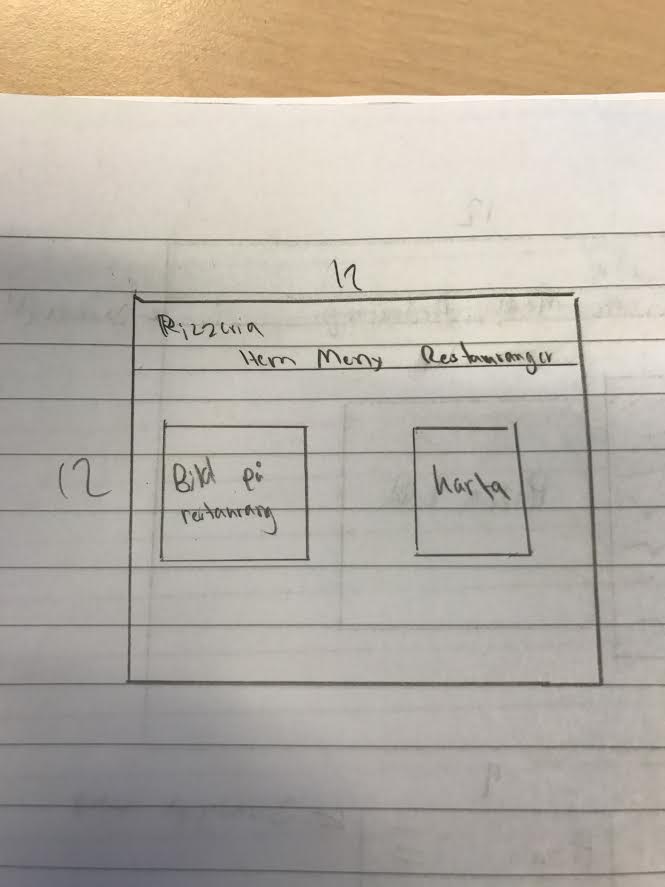 12
Pizzeria
Hem Meny Restauranger
12
Bild på
restaurang
karta